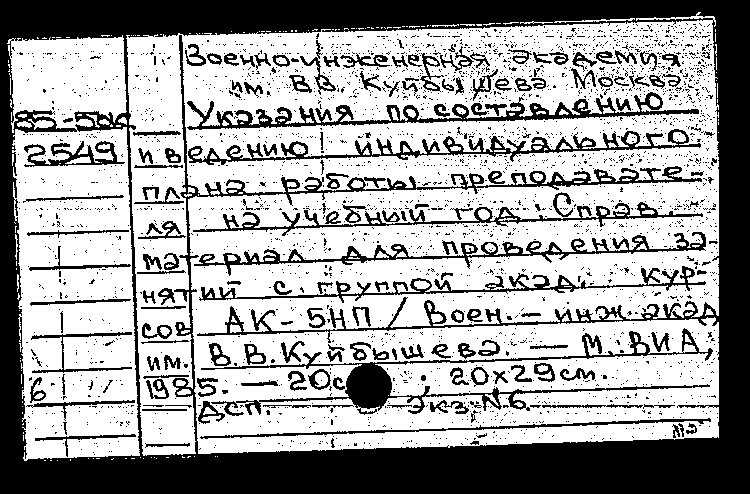 Военно-инженерная академия
им. В.В. Куйбышева. Москва
85-5дс Указания по составлению
2549 и ведению индивидуального
плана работы преподавате-
ля на учебный год : Справ.
материал для проведения за-
нятий с группой акад. кур-
сов АК-5НП / Воен.-инж. акад.
им. В.В. Куйбышева. — М.: ВИА,
6 1985. — 20с ; 20х29см.
ДСП. Экз. №6.